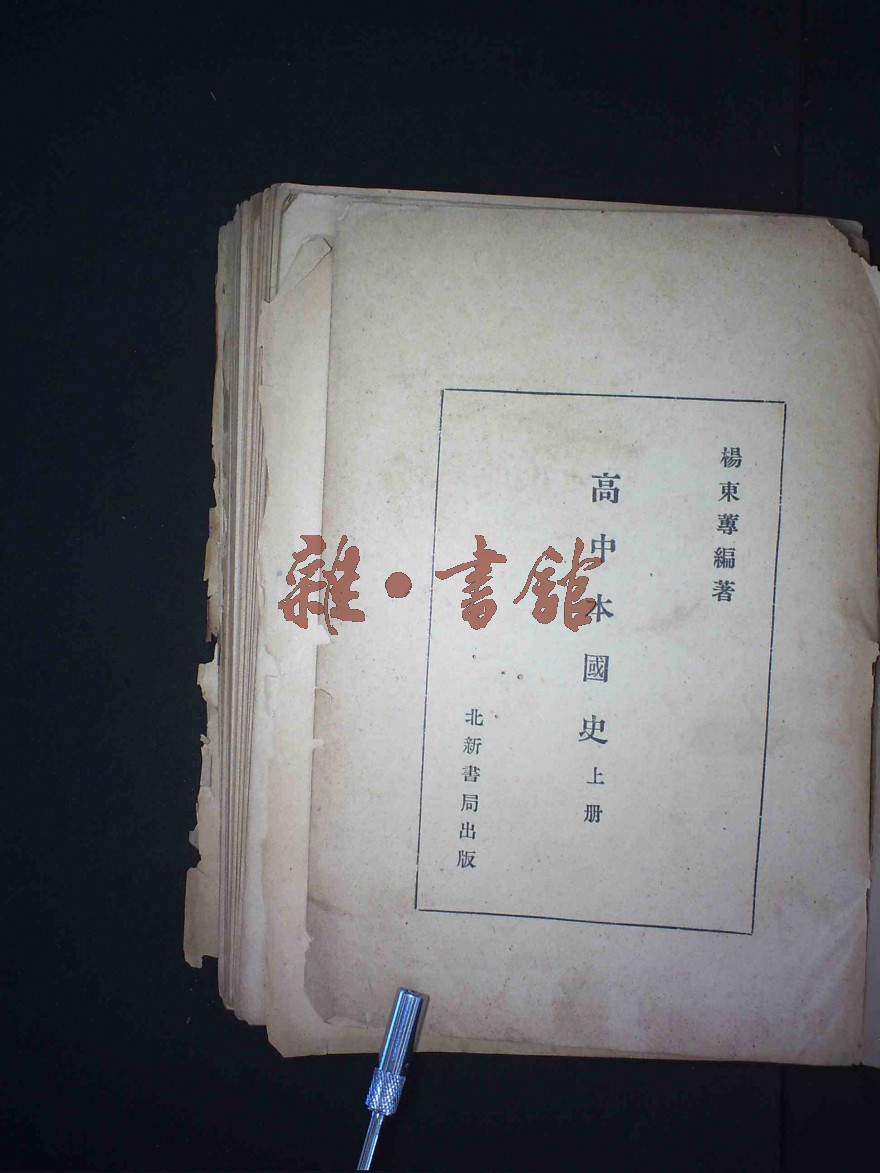 楊東蓴編著
高中本國史上册
北新書局出版
雜·書館